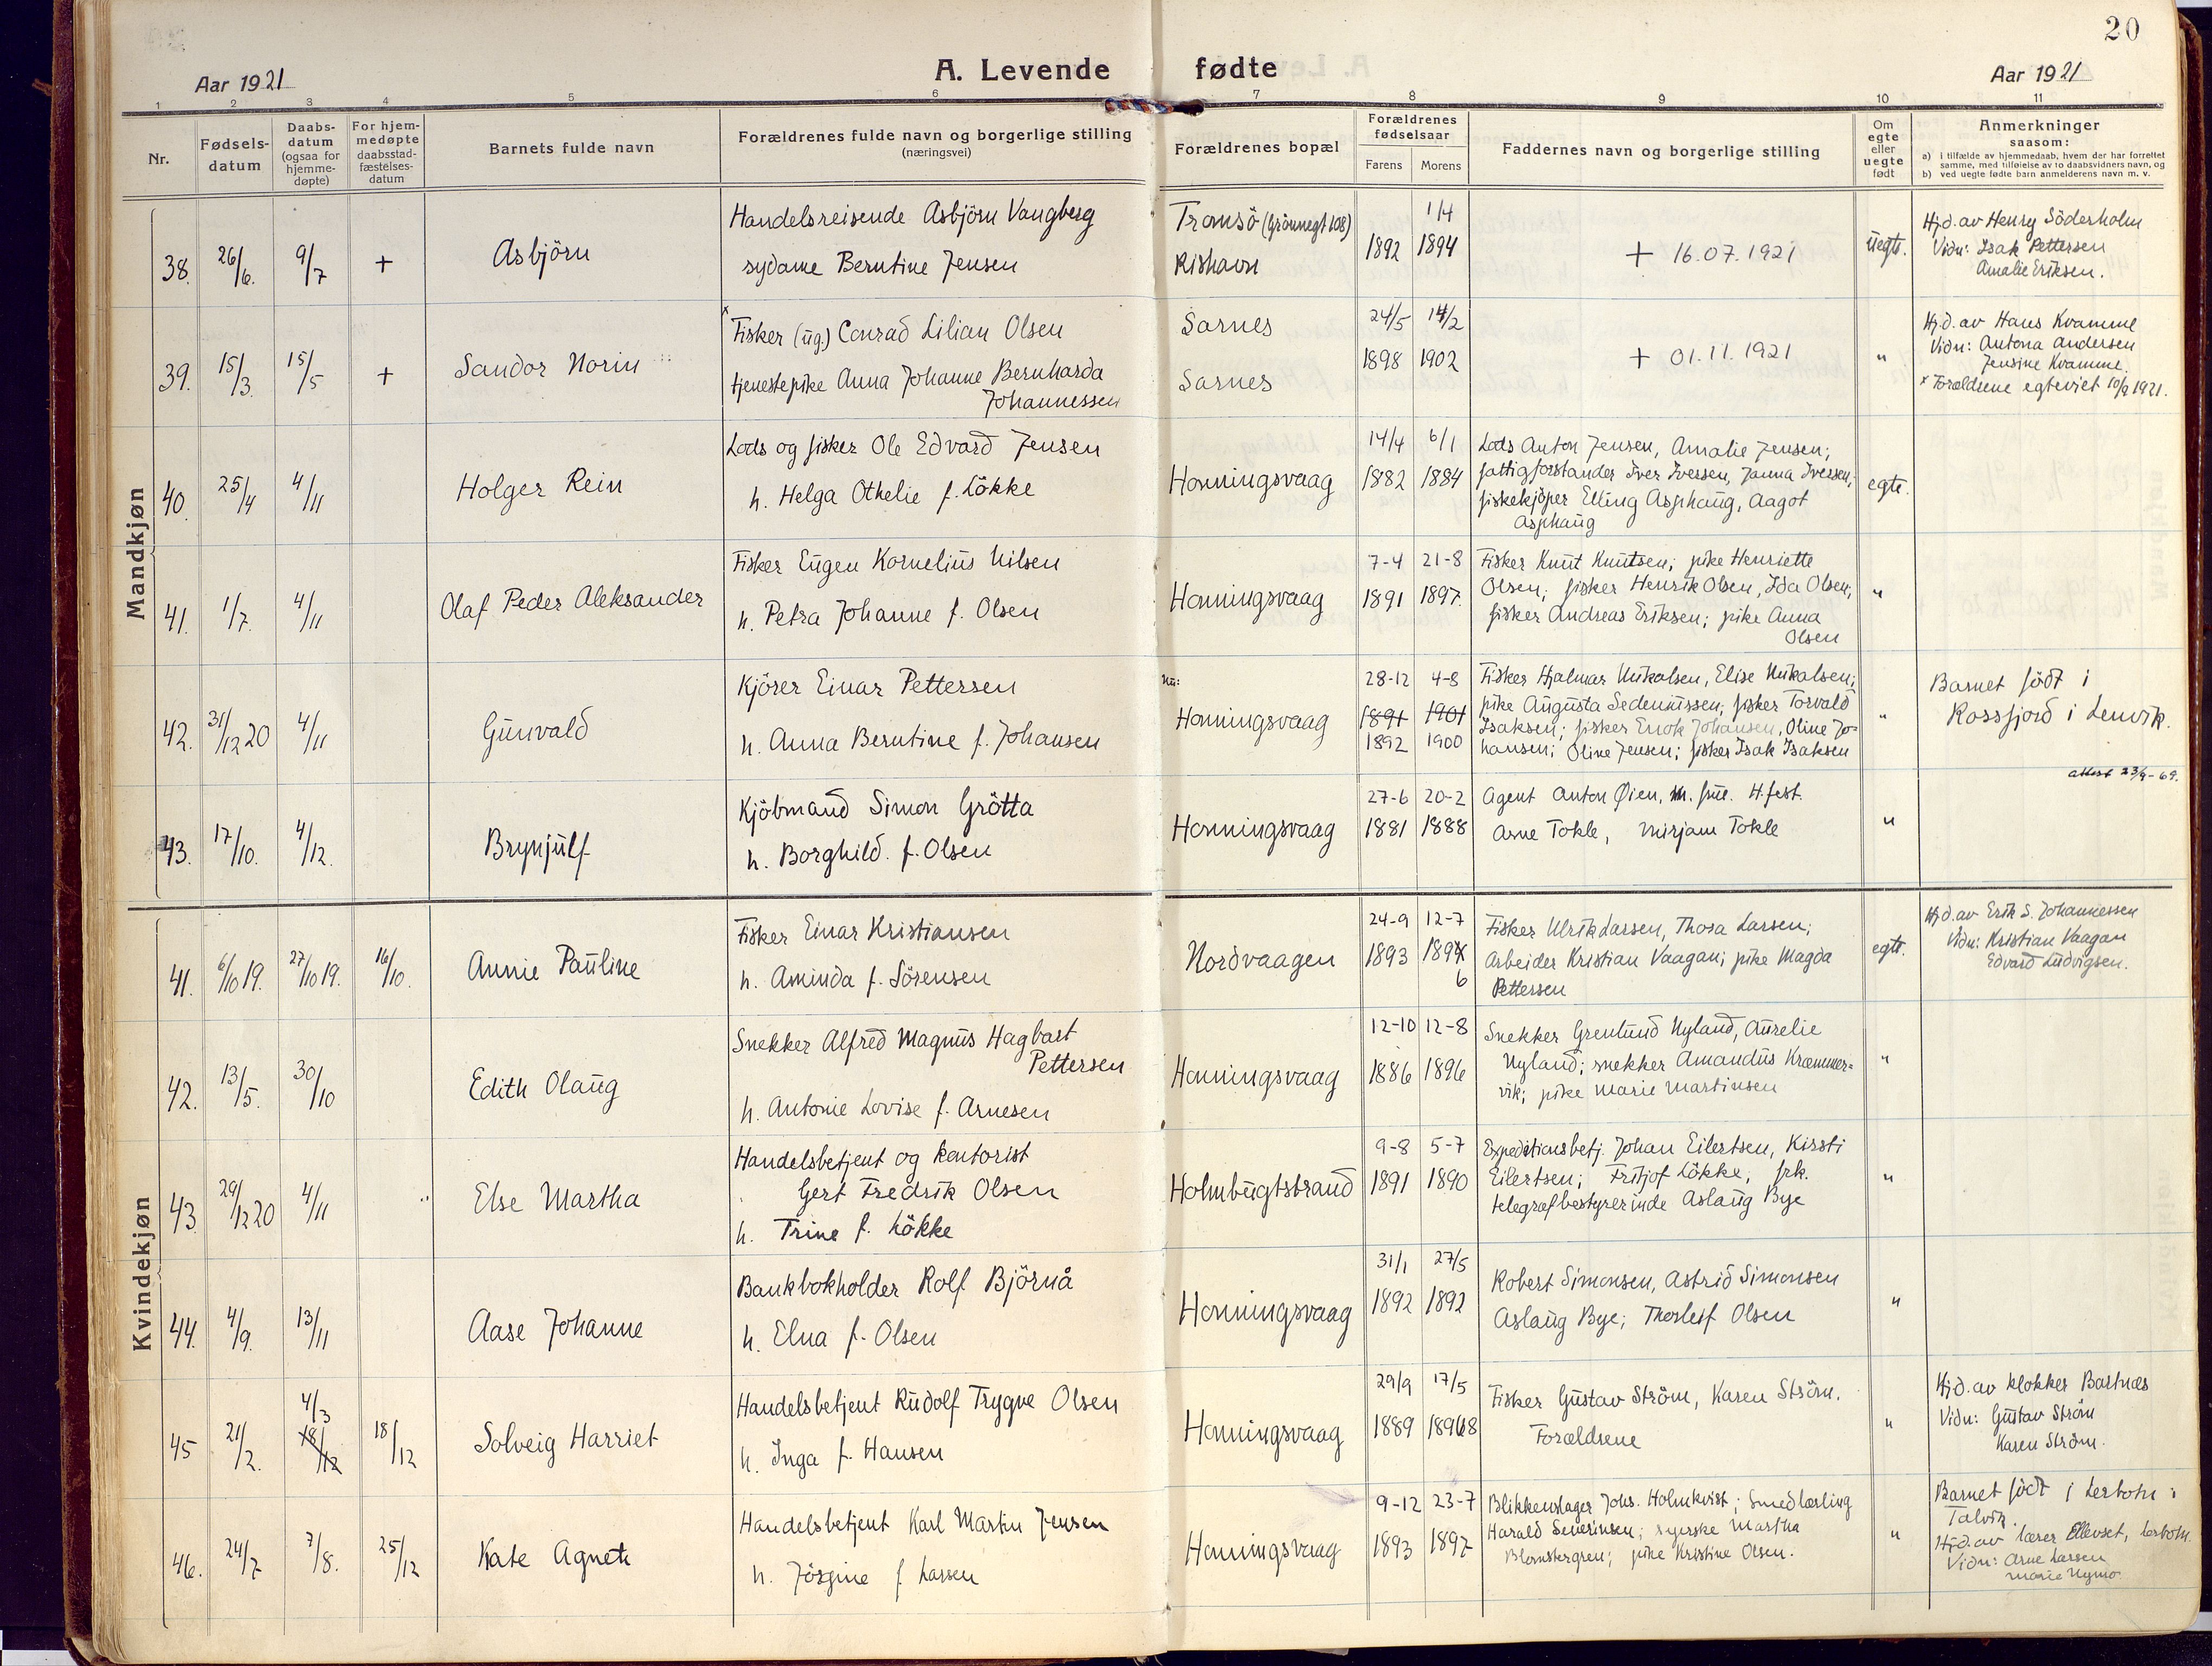 20
Aar 1921
A. Levende fødte
Aar 1921
1 2 3 4 5 6 7 8 9 10 11
Nr.
Fødsels-
datum
Daabs-
datum
(ogsaa for
hjemme-
døpte)
For hjem-
medøpte
daabsstad-
fæstelses-
datum
Barnets fulde navn
Forældrenes fulde navn og borgerlige stilling
(næringsvei)
Forældrenes bopæl
Forældrenes
fødselsaar
Farens
Morens
Faddernes navn og borgerlige stilling
Om
egte
eller
uegte
født
Anmerkninger
saasom:
a) i tilfælde av hjemmedaab, hvem der har forrettet
samme, med tilføielse av to daabsvidners navn, og
b) ved uegte fødte barn anmelderens navn m. v.
Mandkjøn
38. 26/6. 9/7 + Asbjörn
Handelsreisende Asbjörn Vangberg
sydame Berntine Jensen
Tromsö (Grönnegt 108)
Rishavn
1892
1/4
1894
+ 16.07.1921
uegte.
Hjd. av Henry Söderholm
Vidn: Isak Pettersen
Amalie Eriksen.
39. 15/3. 15/5 + Sandor Norin
x Fisker (ug.) Conrad Lilian Olsen
tjenestepike Anna Johanne Bernharda
Johannessen
Sarnes
Sarnes
24/5 14/2
1898 1902
+ 01.11.1921
"
Hjd. av Hans Kvamme
Vidn: Antona Andersen
Jensine Kvamme.
x Forældrene egteviet 10/9 1921.
40. 25/4 4/11 Holger Rein
Lods og fisker Ole Edvard Jensen
h. Helga Othelie f. Lökke
Honningsvaag
14/4 6/1
1882 1884
Lods Anton Jensen, Amalie Jensen;
fattigforstander Iver Iversen, Janna Iversen;
fiskekjöper Elling Asphaug, Aagot
Asphaug
egte.
41. 1/7. 4/11 Olaf Peder Aleksander
Fisker Eugen Kornelius Nilsen
h. Petra Johanne f. Olsen
Honningsvaag
7-4 21-8
1891 1897.
Fisker Knut Knutsen; pike Henriette
Olsen; fisker Henrik Olsen, Ida Olsen;
fisker Andreas Eriksen; pike Anna
Olsen
"
42. 31/12 20 4/11 Gunvald
Kjörer Einar Pettersen
h. Anna Berntine f. Johansen
Nu:
Honningsvaag
28-12 4-8
1891 1901
1892 1900
Fisker Hjalmar Nikolsen, Elise Nikalsen;
pike Augusta Sedeniussen; fisker Torvald
Isaksen; fisker Enok Johansen, Oline Jo-
hansen; Oline Jensen; fisker Isak Isaksen
"
Barnet födt i
Rossfjord i Lenvik.
43. 17/10. 4/12. Brynjulf
Kjöbmand Simon Grötta
h. Borghild. f. Olsen
Honningsvaag
27-6 20-2
1881 1888
Agent Anton Øien, m. fru. H.fest.
Arne Tokle, Mirjam Tokle
"
attest 23/9-69.
Kvindekjøn
41. 6/10 19. 27/10 19. 16/10. Annie Pauline
Fisker Einar Kristiansen
h. Aminda f. Sörensen
Nordvaagen
24-9 12-7
1893 1894
6
Fisker Ulrik Larsen, Thora Larsen;
Arbeider Kristian Vaagan; pike Magda
Pettersen
egte.
Hjd. av Erik S. Johannessen
Vidn: Kristian Vaagan
Edvard Ludvigsen.
42. 13/5. 30/10 Edith Olaug
Snekker Alfred Magnus Hagbart
Pettersen
h. Antonie Lovise f. Arnesen
Honningsvaag
12-10 12-8
1886 1896
Snekker Grenlund Nyland, Aurelie
Nyland; snekker Amandus Kræmmer-
vik; pike Marie Martinsen
"
43. 29/12 20 4/11 Else Martha
Handelsbetjent og kontorist
Gert Fredrik Olsen
h. Trine f. Lökke
Holmbugtstrand
9-8 5-7
1891 1890
Expeditionsbetj. Johan Eilertsen, Kirsti
Eilertsen; Fritjof Lökke; frk.
telegrafbestyrerinde Aslaug Bye
"
44. 4/9. 13/11 Aase Johanne
Bankbokholder Rolf Björnå
h. Elna f. Olsen
Honningsvaag
31/1 27/5
1892 1892
Robert Simonsen, Astrid Simonsen
Aslaug Bye; Thorleif Olsen
"
45 21/2. 4/3 18/12 18/12 Solveig Harriet
Handelsbetjent Rudolf Trygve Olsen
h. Inga f. Hansen
Honningsvaag
29/9 17/5
1889 1898
Fisker Gustav Ström, Karen Ström.
Forældrene
"
Hjd. av klokker Bartnæs
Vidn: Gustav Ström
Karen Ström.
46. 24/7 7/8. 25/12 Kate Agnete
Handelsbetjent Karl Martin Jensen
h. Jörgine f. Larsen
Honningsvaag
9-12 23-7
1893 1897
Blikkenslager Johs. Holmkvist; Smedlærling
Harald Severinsen; syerske Martha
Blomstergren; pike Kristine Olsen.
"
Barnet födt i Lerbotn i
Talvik.
Hjd. av lærer Ellevset, Lerbotn.
Vidn: Arne Larsen
Marie Nymo.